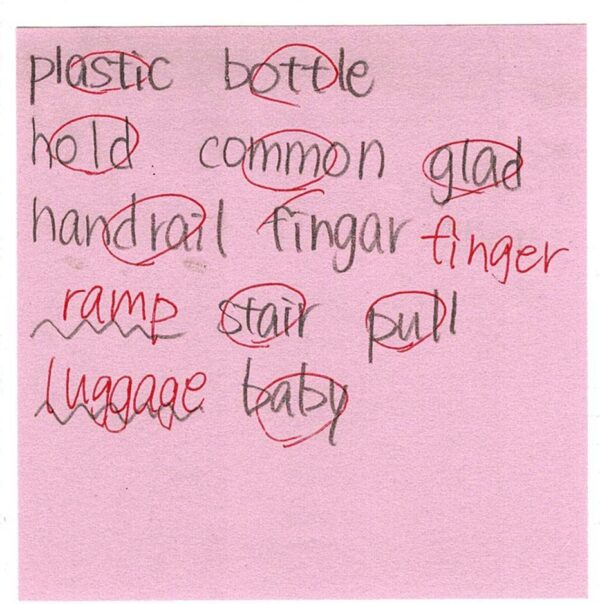 plastic bottle
hold common glad
handrail fingar finger
ramp stair pull
luggage baby